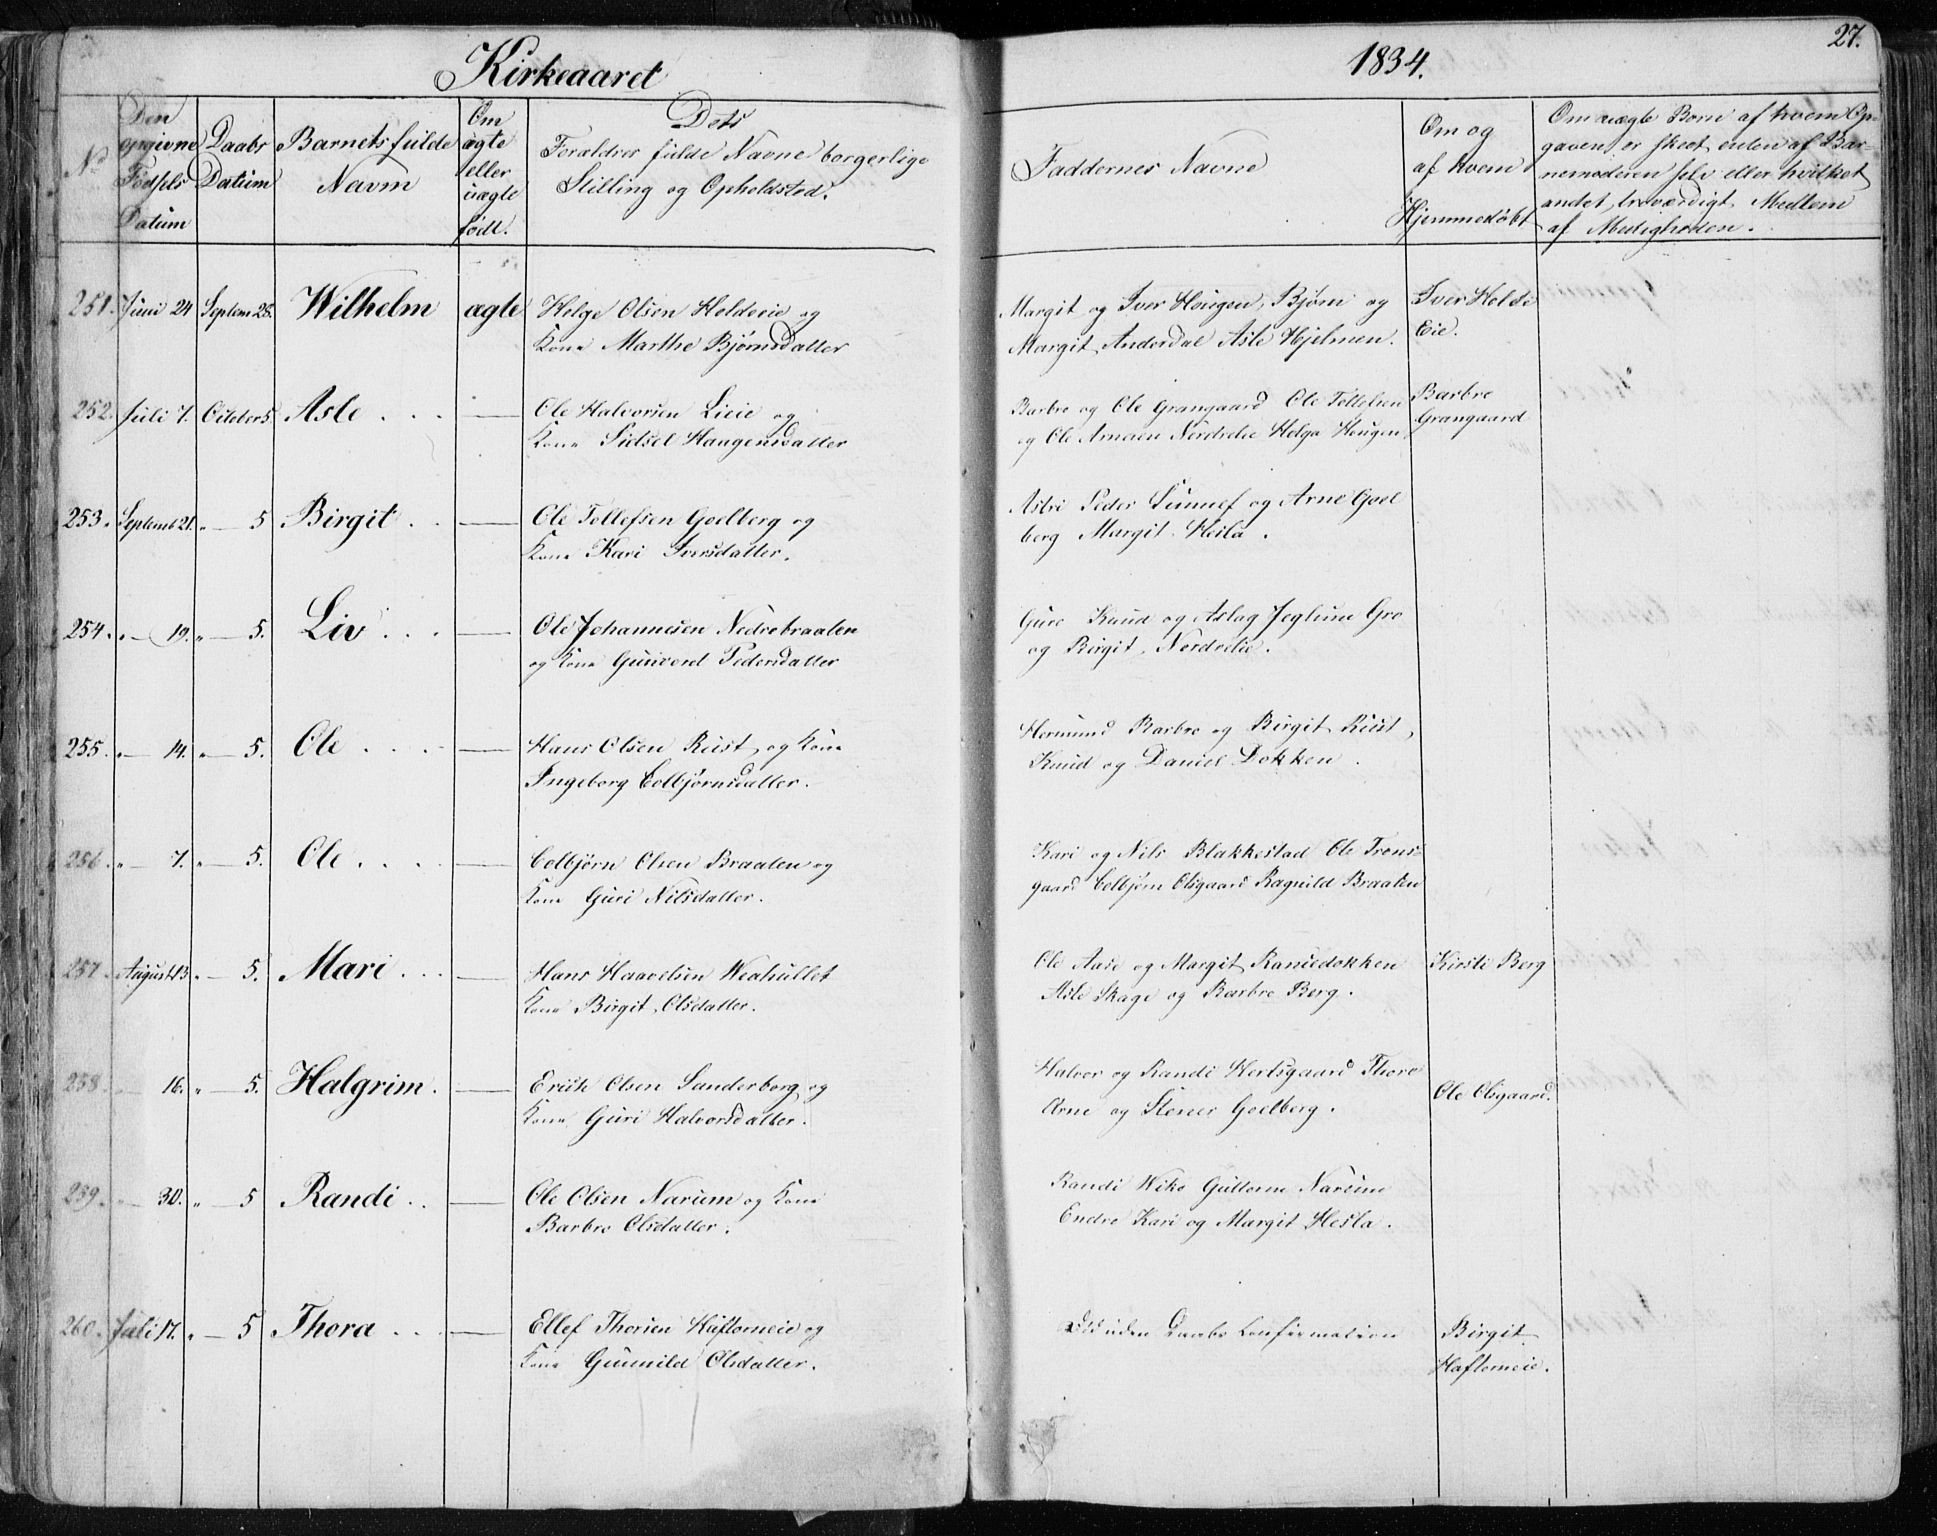 Kirkeaaret 1834. 27.
No
Den opgivne Fødsels Datum
Daabs Datum
Barnets fulde Navn
Om ægte eller uægte født.
Dets Forældres fulde Navne borgerlige Stilling og Opholdsted.
Faddernes Navne
Om og af hvem Hjemmedøbt
Om uægte Børn af hvem Op-
gaven er skeet, enten af Bar-
nemoderen selv eller hvilket
andet troværdigt Medlem
af Menigheden.
251. Juni 24 Septem 28. Wilhelm ægte Helge Olsen Holdeeie og
Kone Marthe Bjørnsdatter
Margit og Iver Hougen, Bjørn og
Margit Anderdal Asle Hjelmen.
Iver Holde
Eie.
252. Juli 7. October 5 Asle . . . — Ole Halvorsen Lieie og
Kone Sidsel Haagensdatter
Barbro og Ole Grangaard Ole Tollefsen
og Ole Arnesen Nordrelie Helga Hougen
Barbro
Grangaard
253. Septemb 21. " — 5 Birgit . . — Ole Tollefsen Goelberg og
Kone Kari Iversdatter.
Astri Peder Sunnef og Arne Goel
berg Margit Hesla .
254. " — 19. " — 5. Liv . . . — Ole Johannesen Nedrebraaten
og Kone Gunvord Pedersdatter
Guro Knud og Aslag Jeglum Gro
og Birgit Nordrelie.
255. " — 14. " — 5. Ole . . . . — Hans Olsen Rust og Kone
Ingeborg Eelbjørnsdatter.
Hermund Barbro og Birgit Rust,
Knud og Daniel Dokken .
256. " — 7. " — 5. Ole . . . . — Eelbjørn Olsen Braaten og
Kone Guri Nilsdatter.
Kari og Nils Blakkestad Ole Trøns-
gaard Eelbjørn Olsgaard Ragnild Braaten
257. August 13. " — 5. Mari . . . — Hans Haavelsen Weahullet
Kone Birgit Olsdatter.
Ole Aase og Margit Ranudokken
Asle Skage og Barbro Berg .
Kirsti Berg
258. — 16. " — 5. Halgrim . — Erich Olsen Sanderborg og
Kone Guri Halvorsdatter.
Halvor og Randi Hertsgaard Thore
Arne og Stener Goelberg .
Ole Olsgaard.
259. " — 30. " — 5 Randi . . — Ole Olsen Narum og Kone
Barbro Olsdatter.
Randi Wiko Guttorm Narum
Endre Kari og Margit Hesla .
260. Juli 17. " — 5 Thora . . . — Ellef Thorsen Haftorneie og
Kone Gunnild Olsdatter.
Død uden Daabs Confirmation
Birgit
Haftorneie.